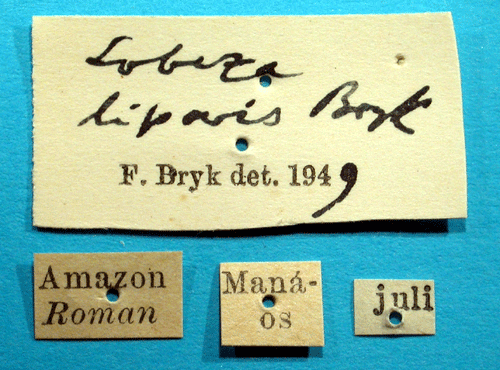 Lobeza
liparis Bryk
F. Bryk det. 1949
Amazon
Roman
Maná-
os
juli